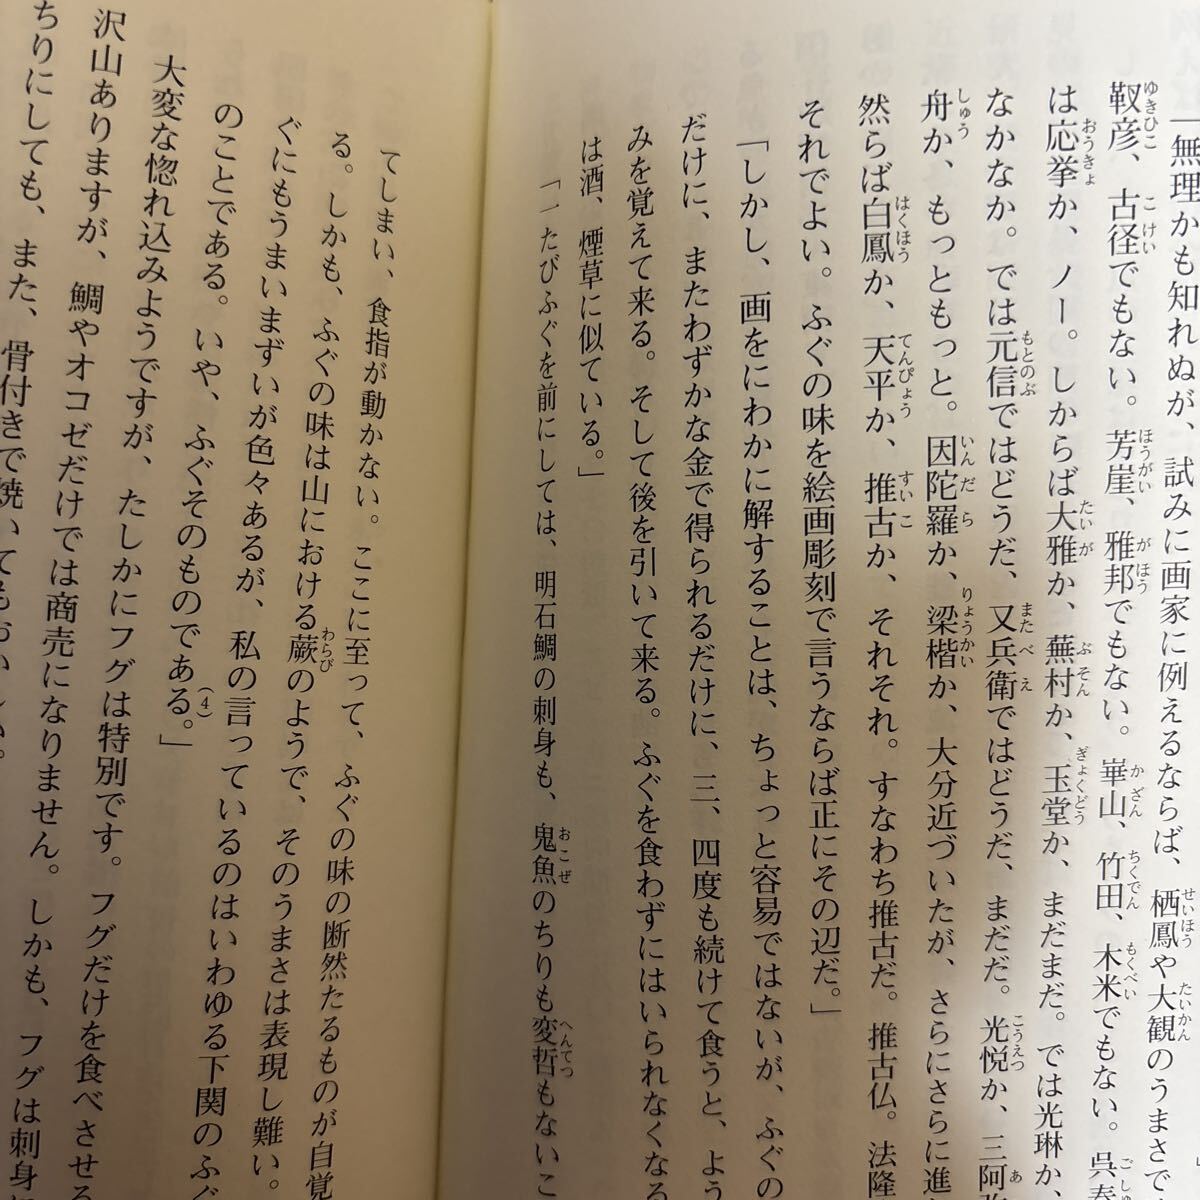 無理かも知れぬが、試みに画家に例えるならば、栖鳳や大観のうまさで
靫彦、古径でもない。芳崖、雅邦でもない。崋山、竹田、木米でもない。呉春
は応挙か、ノー。しからば大雅か、蕪村か、玉堂か、まだまだ。では光琳か、
なかなか。では元信ではどうだ、又兵衛ではどうだ、まだだ。光悦か、三阿
舟か、もっともっと。因陀羅か、梁楷か、大分近づいたが、さらにさらに進
然らば白鳳か、天平か、推古か、それそれ。すなわち推古だ。推古仏。法隆
それでよい。ふぐの味を絵画彫刻で言うならば正にその辺だ。」
「しかし、画をにわかに解することは、ちょっと容易ではないが、ふぐの
だけに、またわずかな金で得られるだけに、三、四度も続けて食うと、よう
みを覚えて来る。そして後を引いて来る。ふぐを食わずにはいられなくなる
は酒、煙草に似ている。」
「一たびふぐを前にしては、明石鯛の刺身も、鬼魚のちりも変哲もないこ
てしまい、食指が動かない。ここに至って、ふぐの味の断然たるものが自覚
る。しかも、ふぐの味は山における蕨のようで、そのうまさは表現し難い。
ぐにもうまいまずいが色々あるが、私の言っているのはいわゆる下関のふぐ
のことである。いや、ふぐそのものである。(4)」
大変な惚れ込みようですが、たしかにフグは特別です。フグだけを食べさせる
沢山ありますが、鯛やオコゼだけでは商売になりません。しかも、フグは刺身
ちりにしても、また、骨付きで焼いてもおいしい。